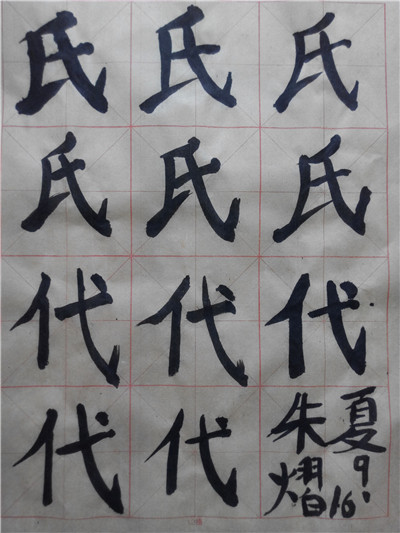 氏氏氏
氏氏氏
代代代
代代
夏9.16
朱熠